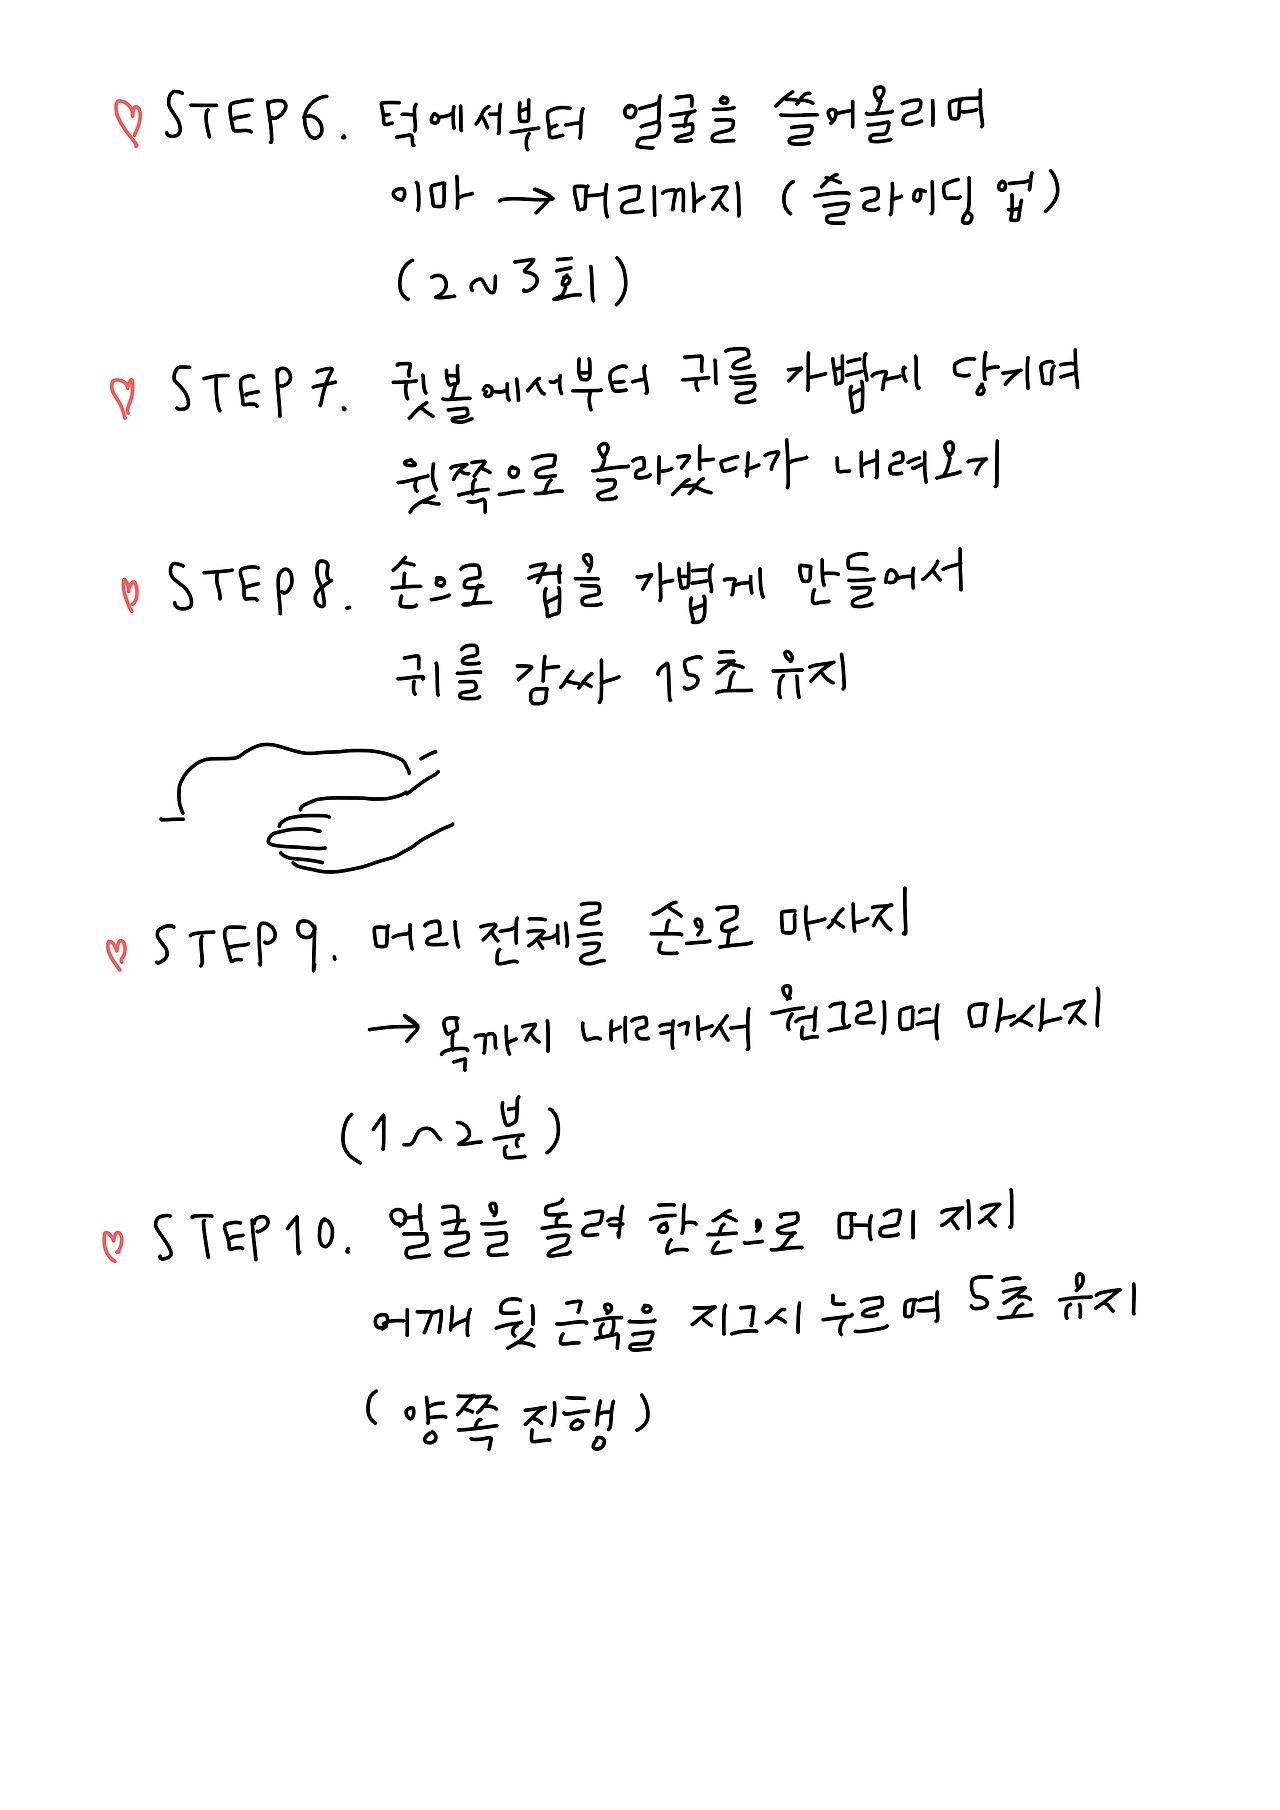 ♡ STEP 6. 턱에서부터 얼굴을 쓸어올리며
이마 → 머리까지 (슬라이딩 업)
(2~3회)
♡ STEP 7. 귓볼에서부터 귀를 가볍게 당기며
윗쪽으로 올라갔다가 내려오기
♡ STEP 8. 손으로 컵을 가볍게 만들어서
귀를 감싸 15초 유지
♡ STEP 9. 머리 전체를 손으로 마사지
→ 목까지 내려가서 원그리며 마사지
(1~2분)
♡ STEP 10. 얼굴을 돌려 한손으로 머리 지지
어깨 뒷 근육을 지그시 누르며 5초 유지
(양쪽 진행)